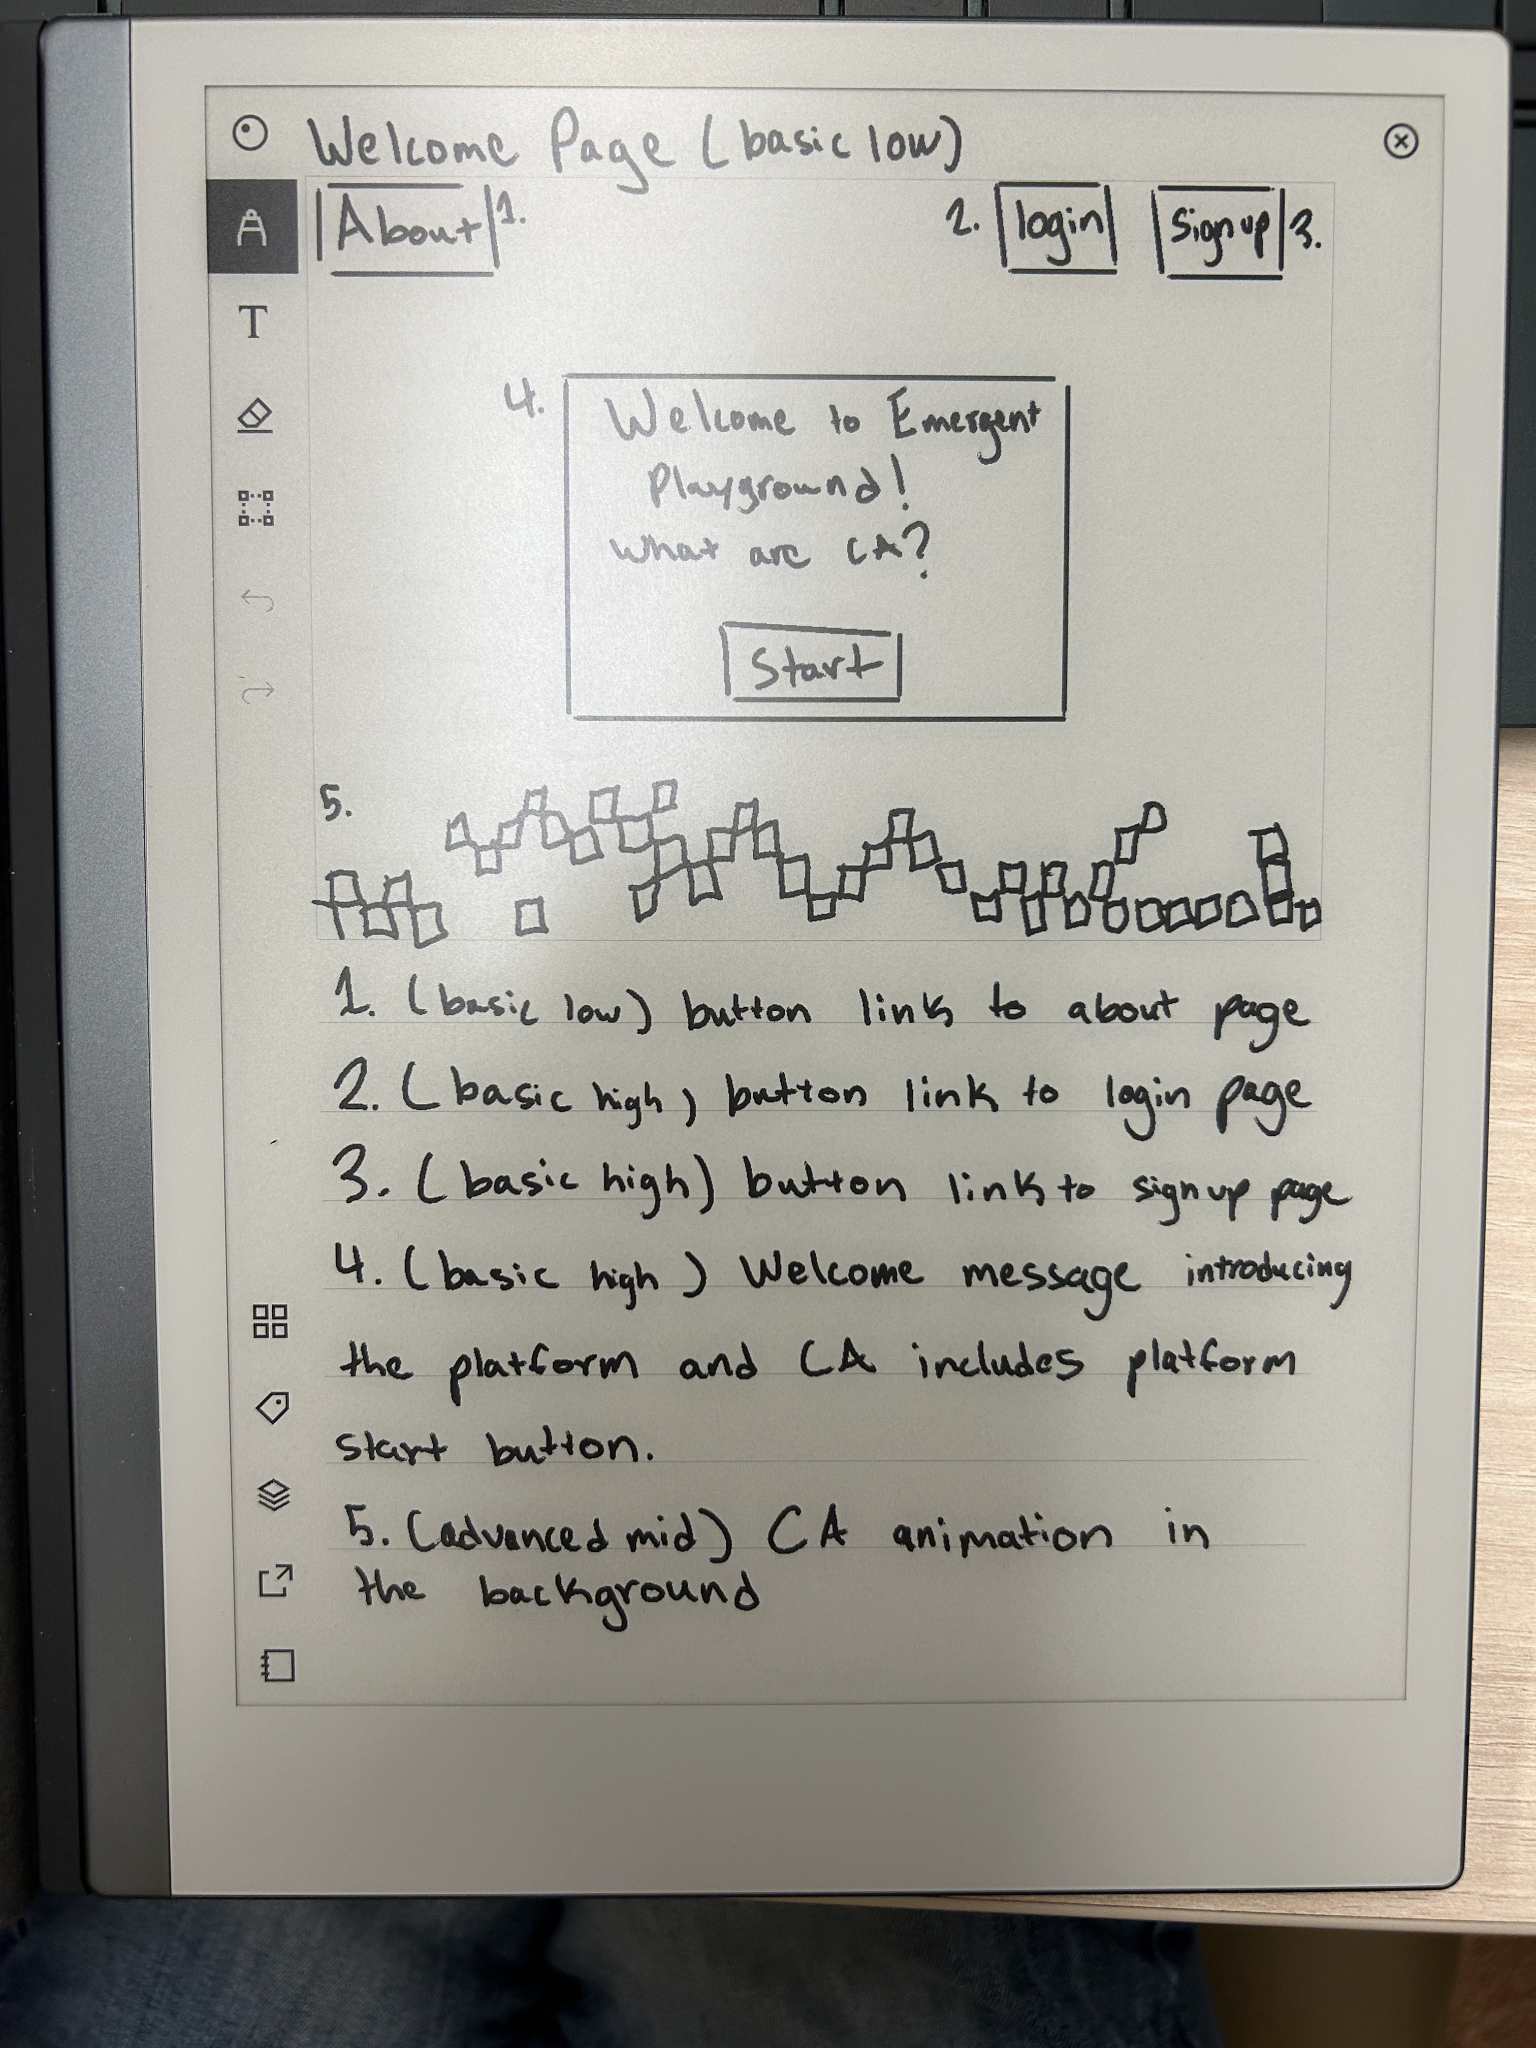 Welcome Page (basic low)
About 1. 2. login Sign up 3.
4. Welcome to Emergent
Playground!
What are CA?
Start
5.
1. (basic low) button link to about page
2. (basic high) button link to login page
3. (basic high) button link to sign up page
4. (basic high) Welcome message introducing
the platform and CA includes platform
start button.
5. (advanced mid) CA animation in
the background